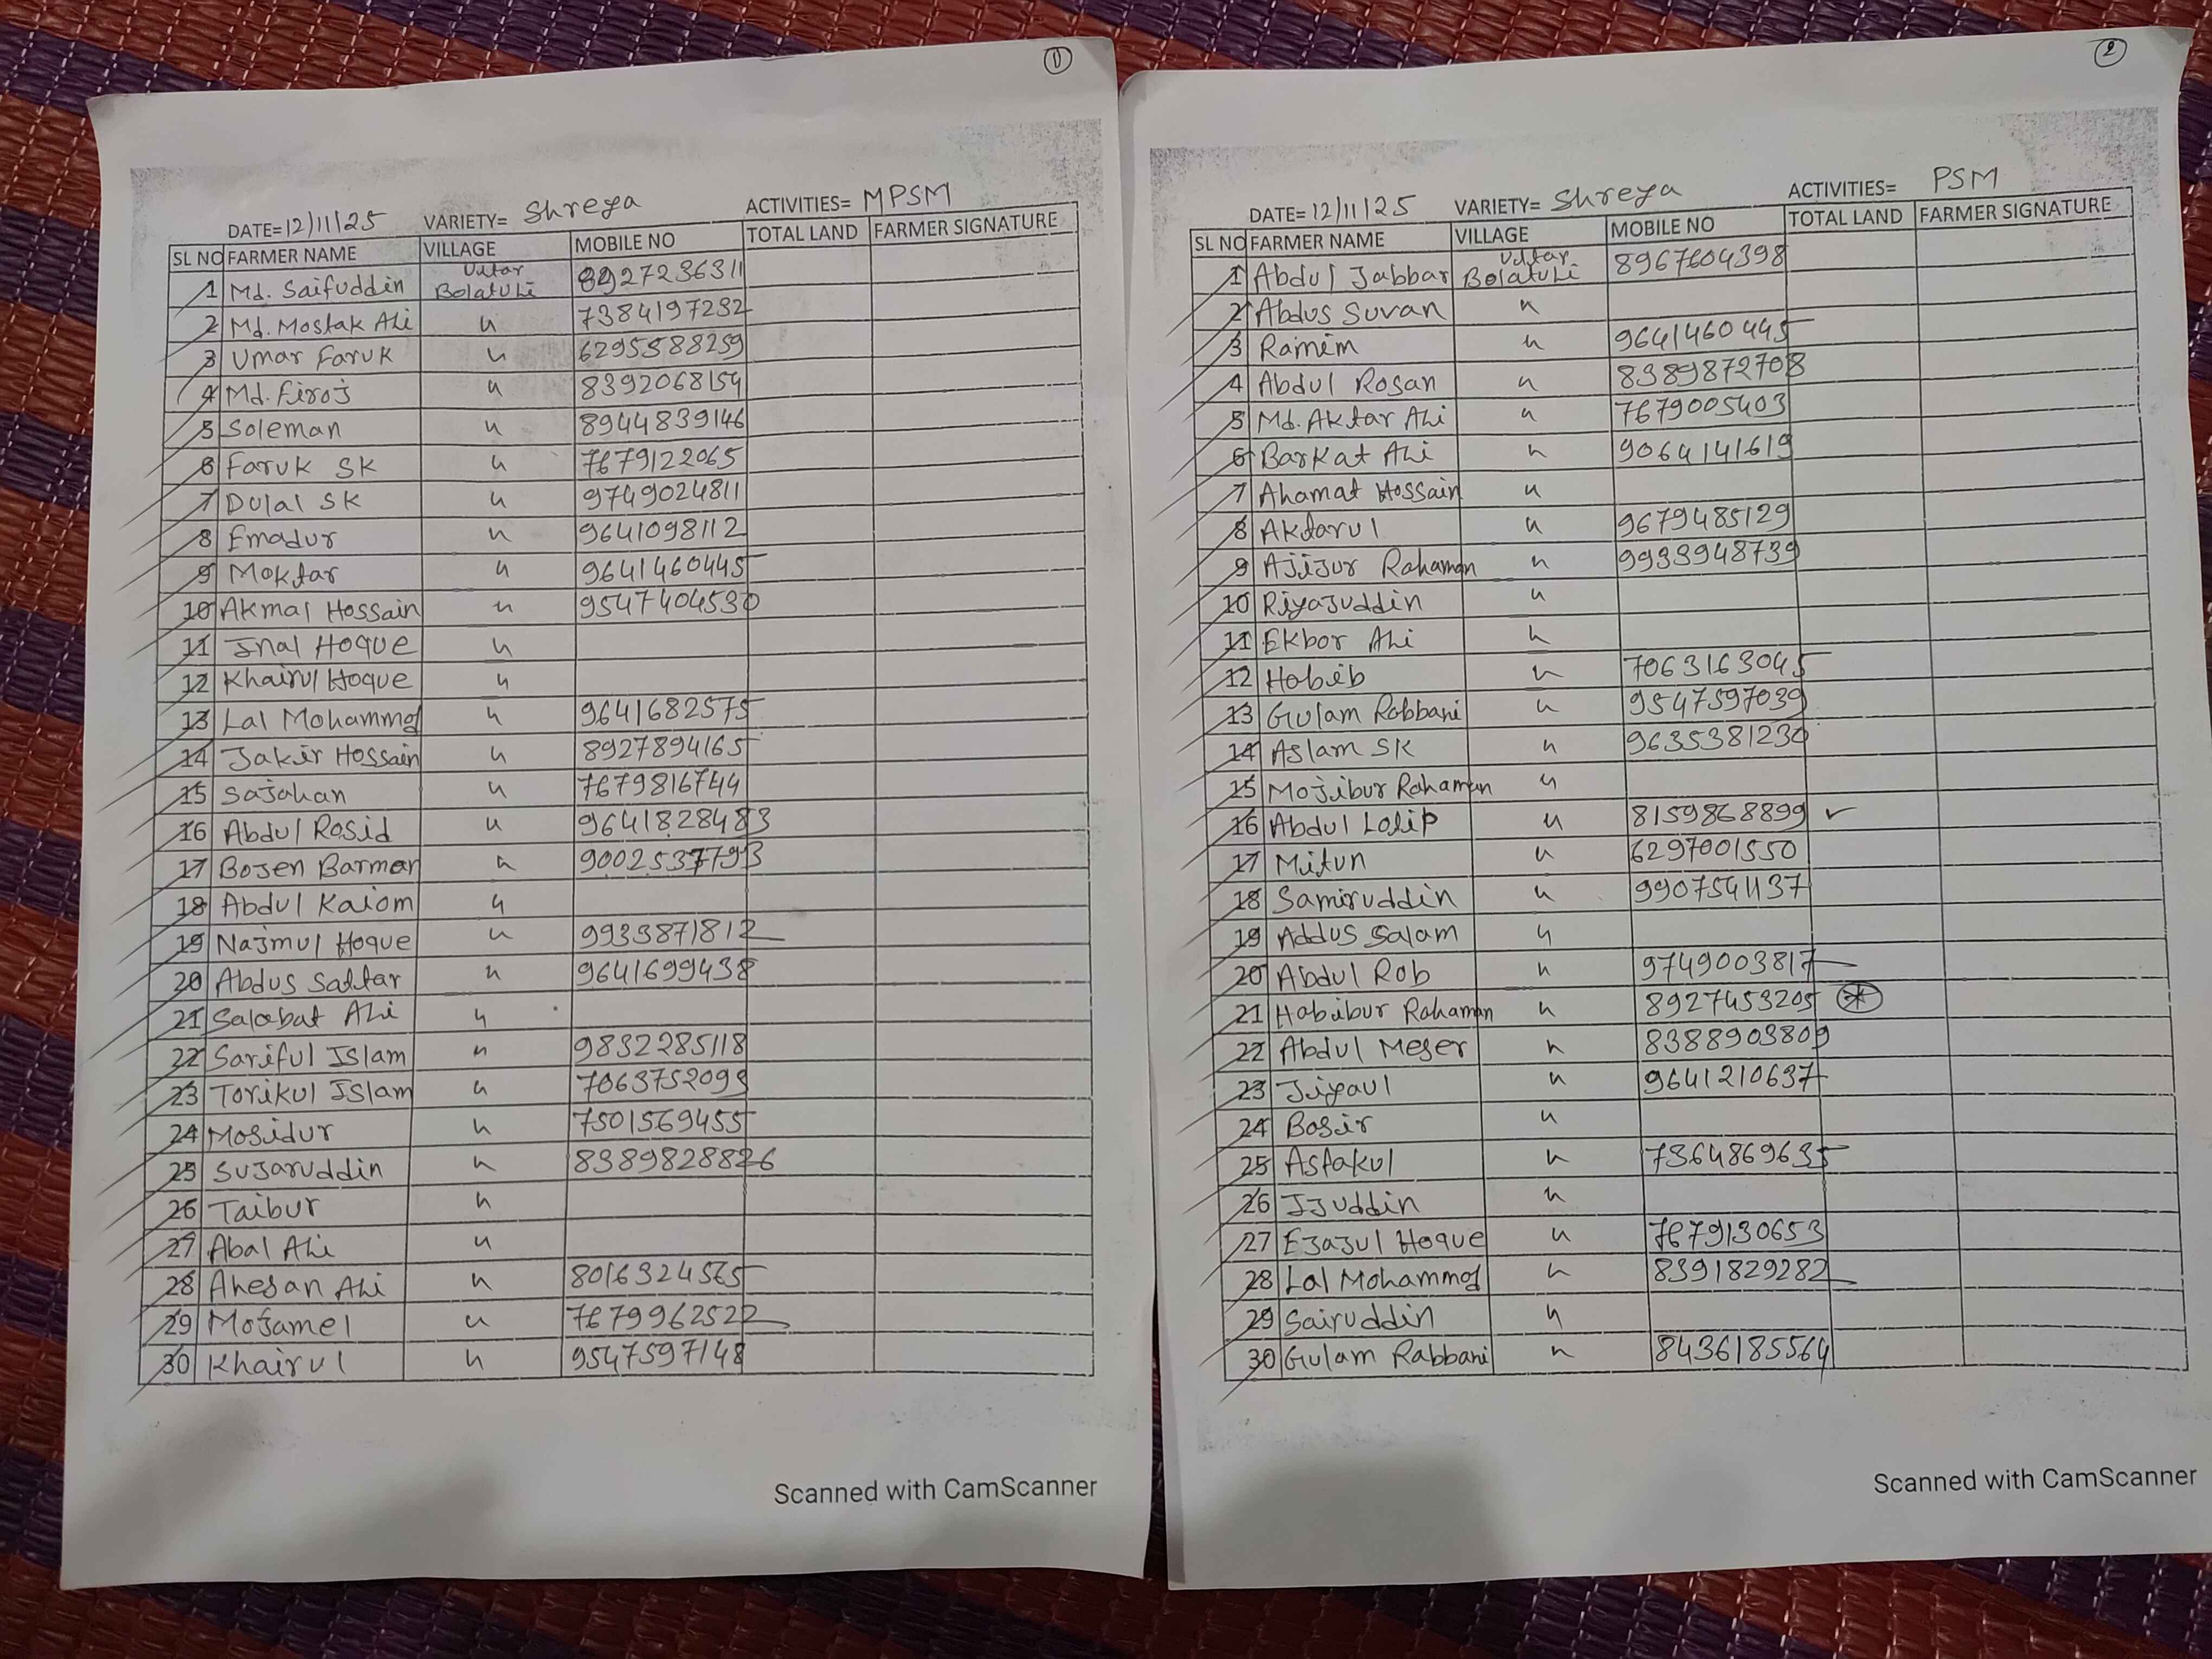 1
DATE= 12/11/25 VARIETY= Shreya ACTIVITIES= MPSM
SL NO FARMER NAME VILLAGE MOBILE NO TOTAL LAND FARMER SIGNATURE
1 Md. Saifuddin Uttar Bolatuli 8927236311
2 Md. Mostak Ali " 7384197232
3 Umar Faruk " 6295588259
4 Md. Firoj " 8392068154
5 Soleman " 8944839146
6 Faruk SK " 7679122065
7 Dulal SK " 9749024811
8 Emadur " 9641098112
9 Moktar " 9641460445
10 Akmal Hossain " 9547404530
11 Inal Hoque "
12 Khairul Hoque "
13 Lal Mohammod " 9641682575
14 Jakir Hossain " 8927894165
15 Sajahan " 7679816744
16 Abdul Rosid " 9641828483
17 Bojen Barman " 9002537793
18 Abdul Kaiom "
19 Najmul Hoque " 9933871812
20 Abdus Sattar " 9641699438
21 Salabat Ali "
22 Sariful Islam " 9832285118
23 Torikul Islam " 7063752099
24 Mosidur " 7501569455
25 Sujaruddin " 8389828826
26 Taibur "
27 Abal Ali "
28 Ahesan Ali " 8016324565
29 Mojamel " 7679962522
30 Khairul " 9547597148
Scanned with CamScanner
2
DATE= 12/11/25 VARIETY= Shreya ACTIVITIES= PSM
SL NO FARMER NAME VILLAGE MOBILE NO TOTAL LAND FARMER SIGNATURE
1 Abdul Jabbar Uttar Bolatuli 8967604398
2 Abdus Suvan "
3 Ramim " 9641460445
4 Abdul Rosan " 8389872708
5 Md. Aktar Ali " 7679005403
6 Barkat Ali " 9064141619
7 Ahamat Hossain "
8 Aktarul " 9679485129
9 Ajijur Rahaman " 9933948739
10 Riyajuddin "
11 Ekbor Ali "
12 Habib " 7063163045
13 Gulam Robbani " 9547597039
14 Aslam SK " 9635381230
15 Mojibur Rahaman "
16 Abdul Lotip " 8159868899 ✓
17 Mitun " 6297001550
18 Samiruddin " 9907541137
19 Addus Salam "
20 Abdul Rob " 9749003817
21 Habibur Rahaman " 8927453205 *
22 Abdul Meser " 8388903809
23 Jiyaul " 9641210637
24 Bosir "
25 Astakul " 7364869635
26 Ijuddin "
27 Ejajul Hoque " 7679130653
28 Lal Mohammod " 8391829282
29 Sairuddin "
30 Gulam Rabbani " 8436185564
Scanned with CamScanner